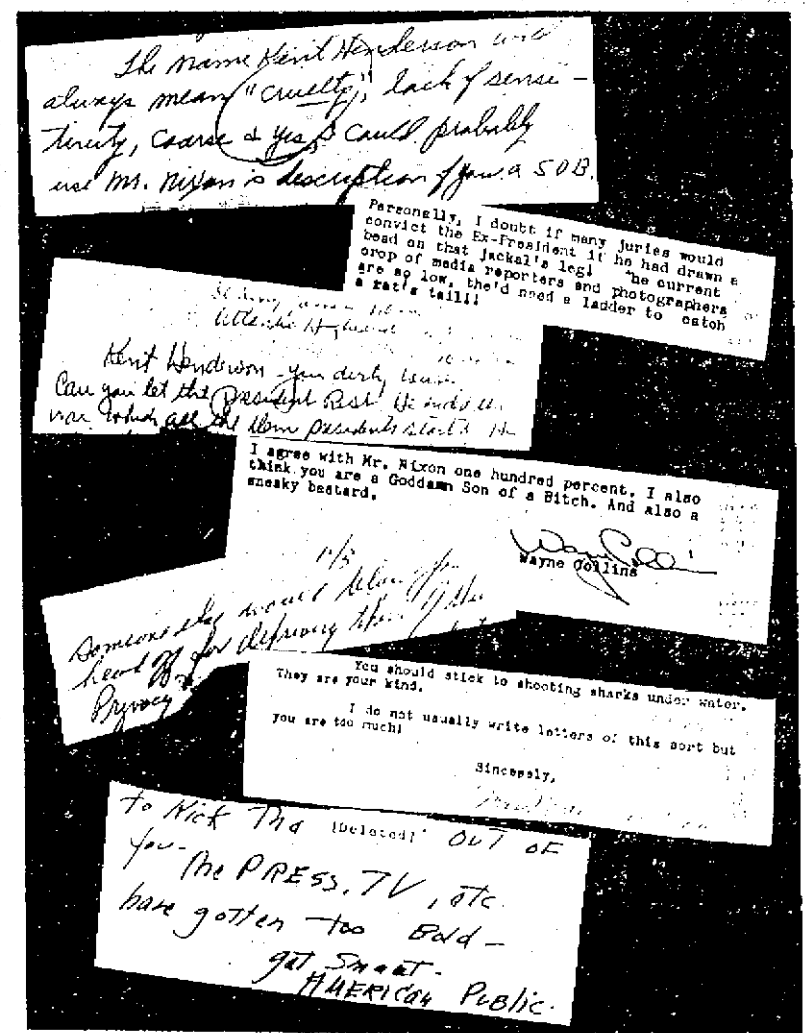 The name Kent Henderson will
always mean "cruelty", lack of sense-
tivity, coarse & yes, I could probably
use Mr. Nixon's description of you. a SOB.
Personally, I doubt if many juries would
convict the Ex-President if he had drawn a
bead on that jackal's leg! he current
crop of media reporters and photographers
are so low, the'd need a ladder to catch
a rat's tail!!
Kent Henderson - you dirty
Can you let the President Rest. He ended the
war which all the dem presidents start. He
I agree with Mr. Nixon one hundred percent. I also
think you are a Goddamn Son of a Bitch. And also a
sneaky bastard.
Wayne Collins
Wayne Collins
someone else would blow
head off for depriving them of
Privacy
You should stick to shooting sharks under water.
They are your kind.
I do not usually write letters of this sort but
you are too much!
Sincesely,
to Kick The [Deleted] OUT OF
you-
The PRESS, TV, etc
have gotten too Bold-
get Smart.
AMERICAN Public.